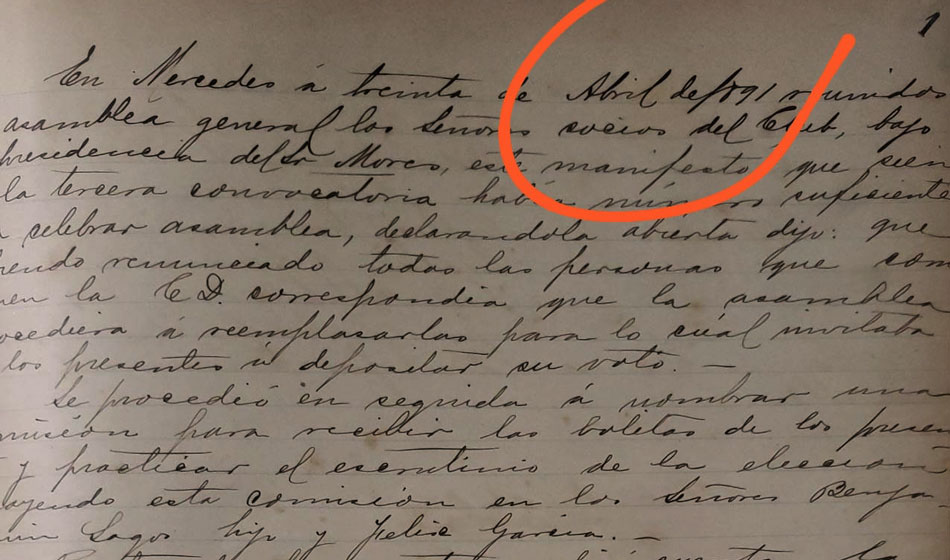 1
En Mercedes á treinta de Abril de 1891 reunidos
asamblea general los Señores socios del Club, bajo
presidencia del Sr Mores, este manifesto que sien
la tercera convocatoria había número suficiente
a celebrar asamblea, declarandola abierta dijo: que
iendo renunciado todas las personas que com
nen la C D. correspondia que la asamblea
ocediera á reemplasarlas para lo cúal invitaba
los presentes á depositar su voto. —
Se procedió en seguida á nombrar una
misión para recibir las boletas de los presen
y practicar el escrutinio de la eleccion
ayendo esta comisión en los Señores Benja
min Lagos hijo y Felix Garcia. —